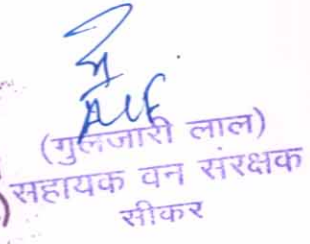 ACF
(गुलजारी लाल)
सहायक वन संरक्षक
सीकर